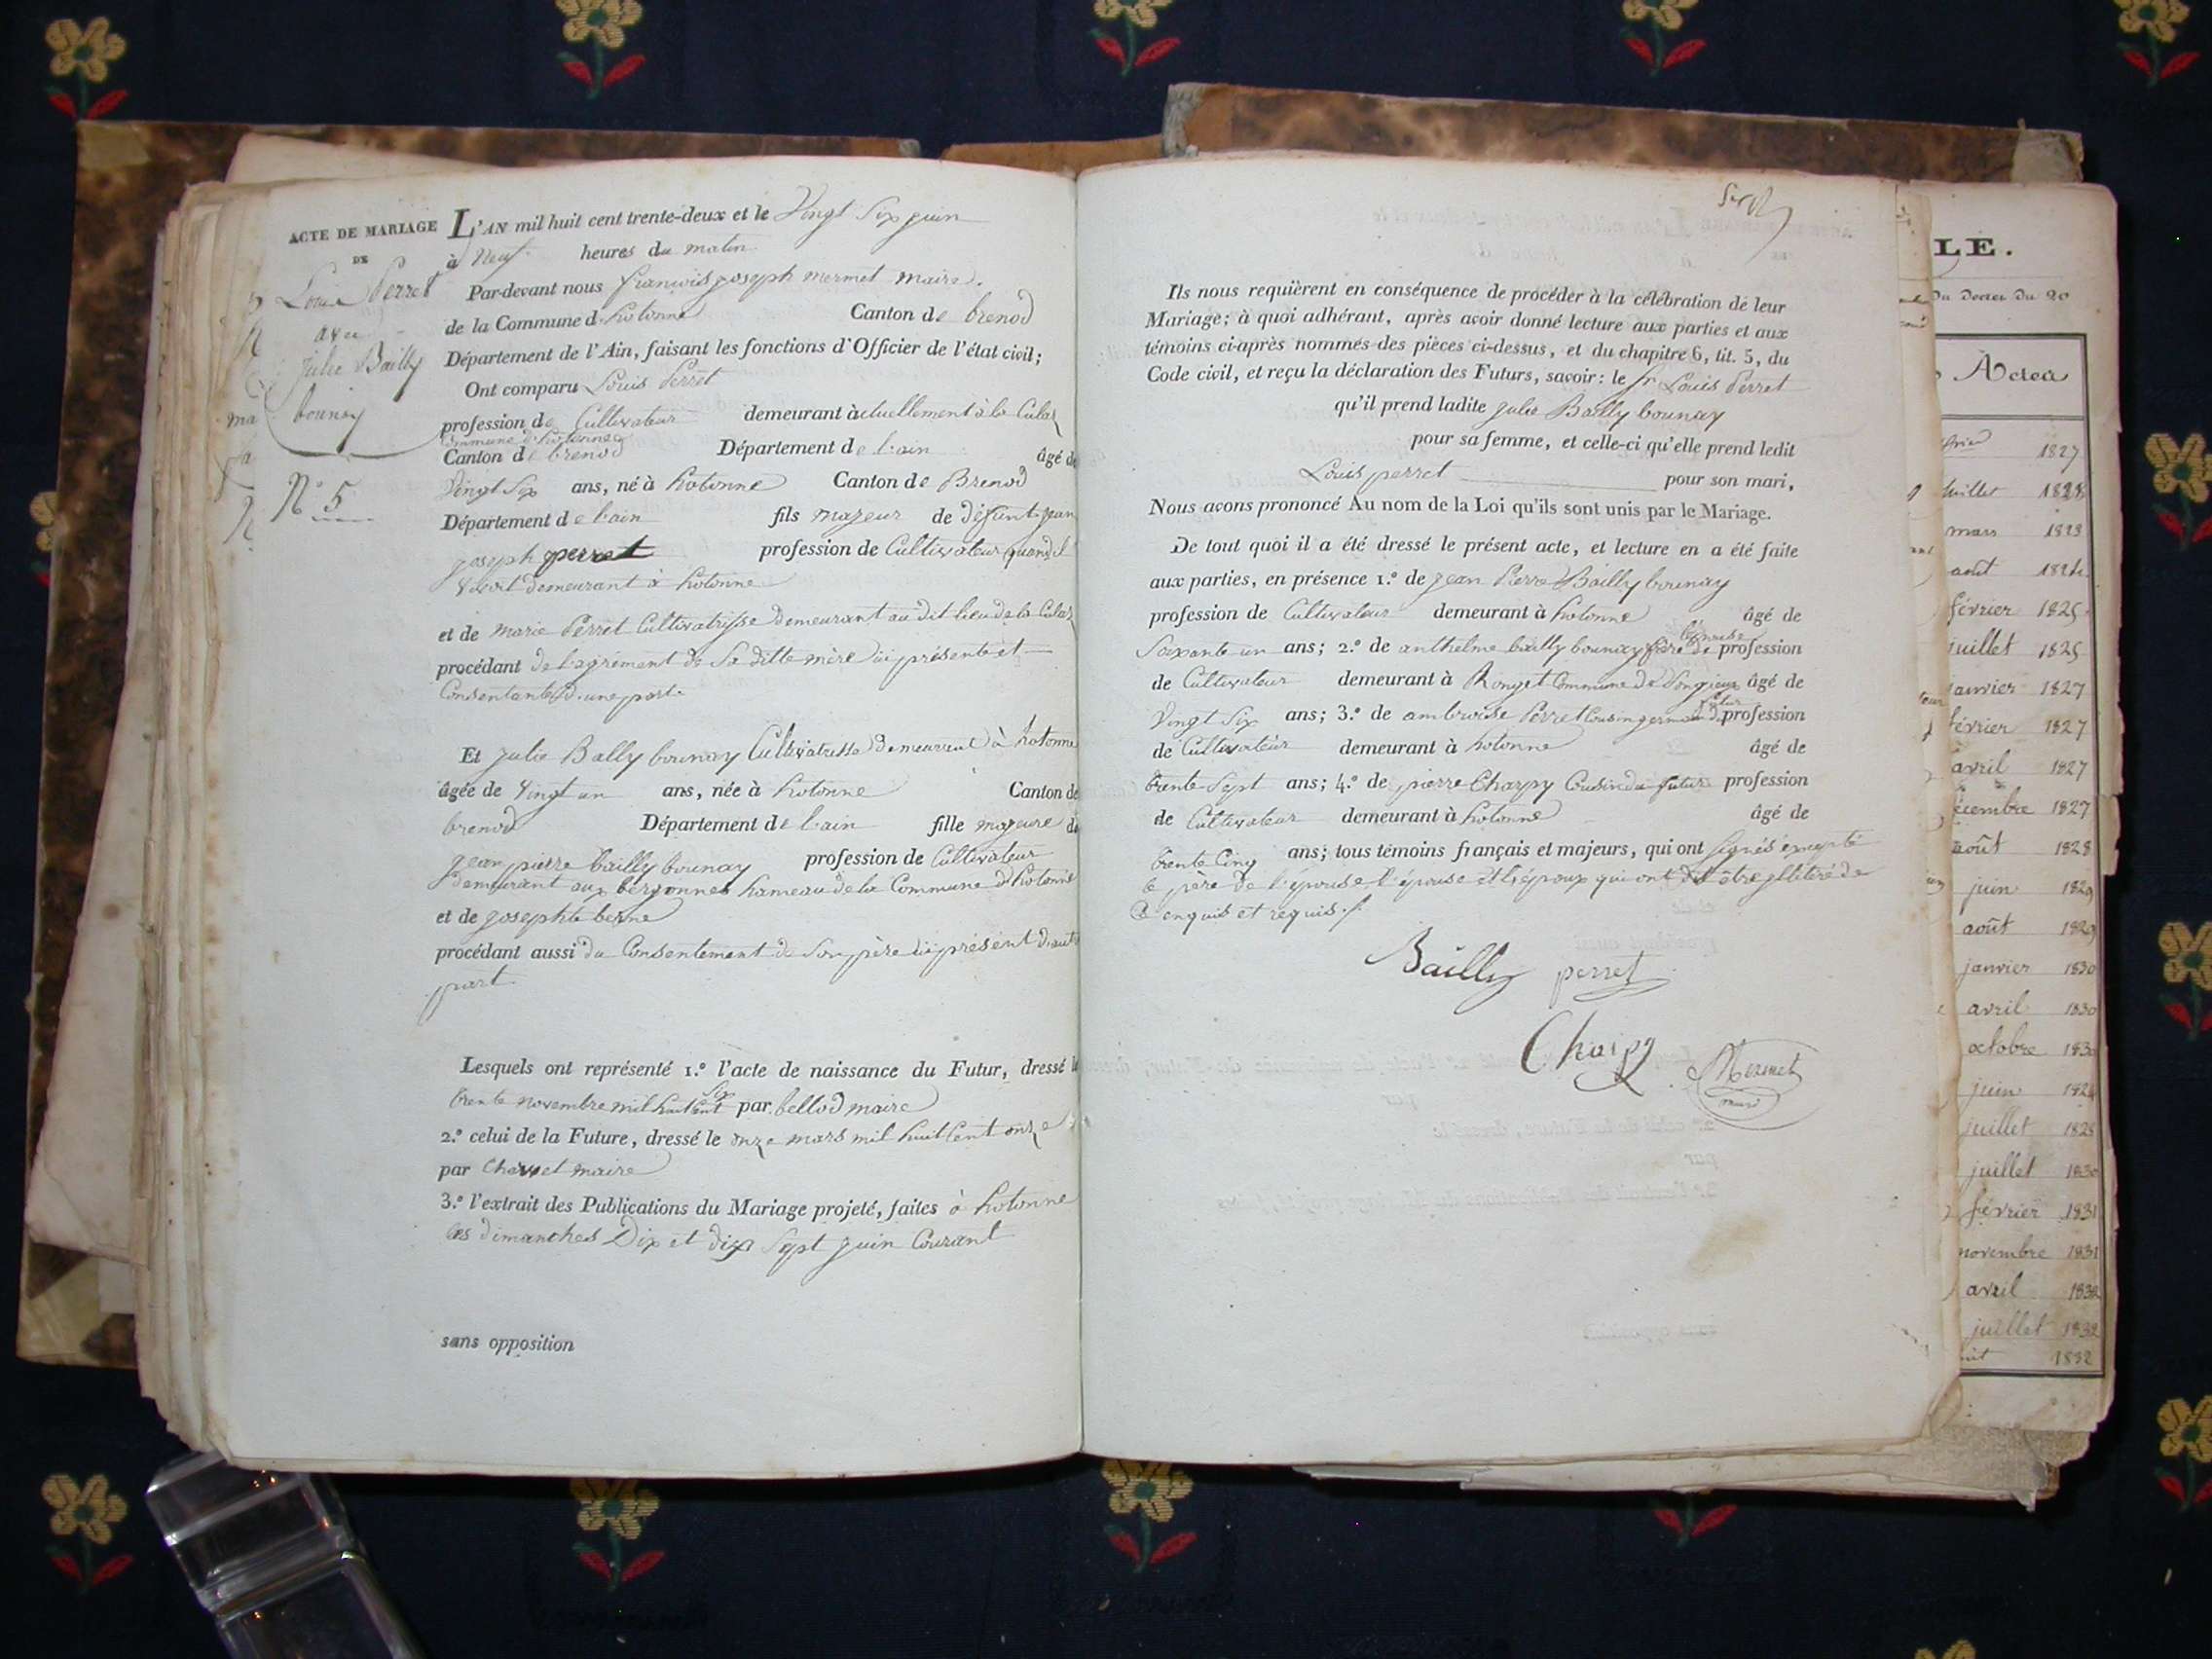 ACTE DE MARIAGE
DE
Louis Perret
avec
Julie Bailly
bounay
N° 5
L'AN mil huit cent trente-deux et le Vingt Six juin
à Neuf heures du matin
Par-devant nous francois joseph mermet maire
de la Commune d hotonne Canton de brenod
Département de l'Ain, faisant les fonctions d'Officier de l'état civil;
Ont comparu Louis Perret
profession de Cultivateur demeurant àctuellement à la Culaz
Commune d'hotonne
Canton de brenod Département de l'ain âgé de
Vingt Six ans, né à hotonne Canton de Brenod
Département de l'ain fils majeur de défunt jean
joseph perret profession de Cultivateur quand il
Vivoit demeurant à hotonne
et de marie Perret Cultivatrisse demeurant au dit lieu de la Culaz
procédant de l'agrément de Sa ditte mère ici présente et
Consentante d'une part.
Et julie Bally bounay Cultivatrisse demeurant à hotonne
âgée de Vingt un ans, née à hotonne Canton de
brenod Département de l'ain fille majeure de
jean pierre bailly bounay profession de Cultivateur
demeurant aux bergonnes hameau de la Commune d'hotonne
et de josephte berne
procédant aussi du Consentement de Son père ici présent d'autre
part
Lesquels ont représenté 1.º l'acte de naissance du Futur, dressé le
trente novembre mil huit cent six par bellod maire
2.º celui de la Future, dressé le onze mars mil huit Cent onze
par Charvet maire
3.º l'extrait des Publications du Mariage projeté, faites à hotonne
les dimanches Dix et dix Sept juin Courant
sans opposition
Ils nous requièrent en conséquence de procéder à la célébration de leur
Mariage; à quoi adhérant, après avoir donné lecture aux parties et aux
témoins ci-après nommés des pièces ci-dessus, et du chapitre 6, tit. 5, du
Code civil, et reçu la déclaration des Futurs, savoir: le Sr Louis Perret
qu'il prend ladite julie Bailly bounay
pour sa femme, et celle-ci qu'elle prend ledit
Louis perret pour son mari,
Nous avons prononcé Au nom de la Loi qu'ils sont unis par le Mariage.
De tout quoi il a été dressé le présent acte, et lecture en a été faite
aux parties, en présence 1.º de jean Pierre Bailly bounay
profession de Cultivateur demeurant à hotonne âgé de
Soixante un ans; 2.º de anthelme bailly bounay frère de l'épouse profession
de Cultivateur demeurant à Rouget Commune de Songieux âgé de
Vingt Six ans; 3.º de ambroise Perret Cousin germain du futur profession
de Cultivateur demeurant à hotonne âgé de
trente Sept ans; 4.º de pierre Charpy Cousin du futur profession
de Cultivateur demeurant à hotonne âgé de
trente Cinq ans; tous témoins français et majeurs, qui ont Signés éxcepté
le père de l'épouse l'épouse et l'époux qui ont dit être illitéré de
Ce enquis et requis
Bailly perret
Charpy
Mermet
maire
LE.
Actes
1827
juillet 1828
mars 1823
août 1824
février 1825
juillet 1825
janvier 1827
février 1827
avril 1827
décembre 1827
août 1828
juin 1829
août 1829
janvier 1830
avril 1830
octobre 1830
juin 1824
juillet 1828
juillet 1830
février 1831
novembre 1831
avril 1832
juillet 1832
1832